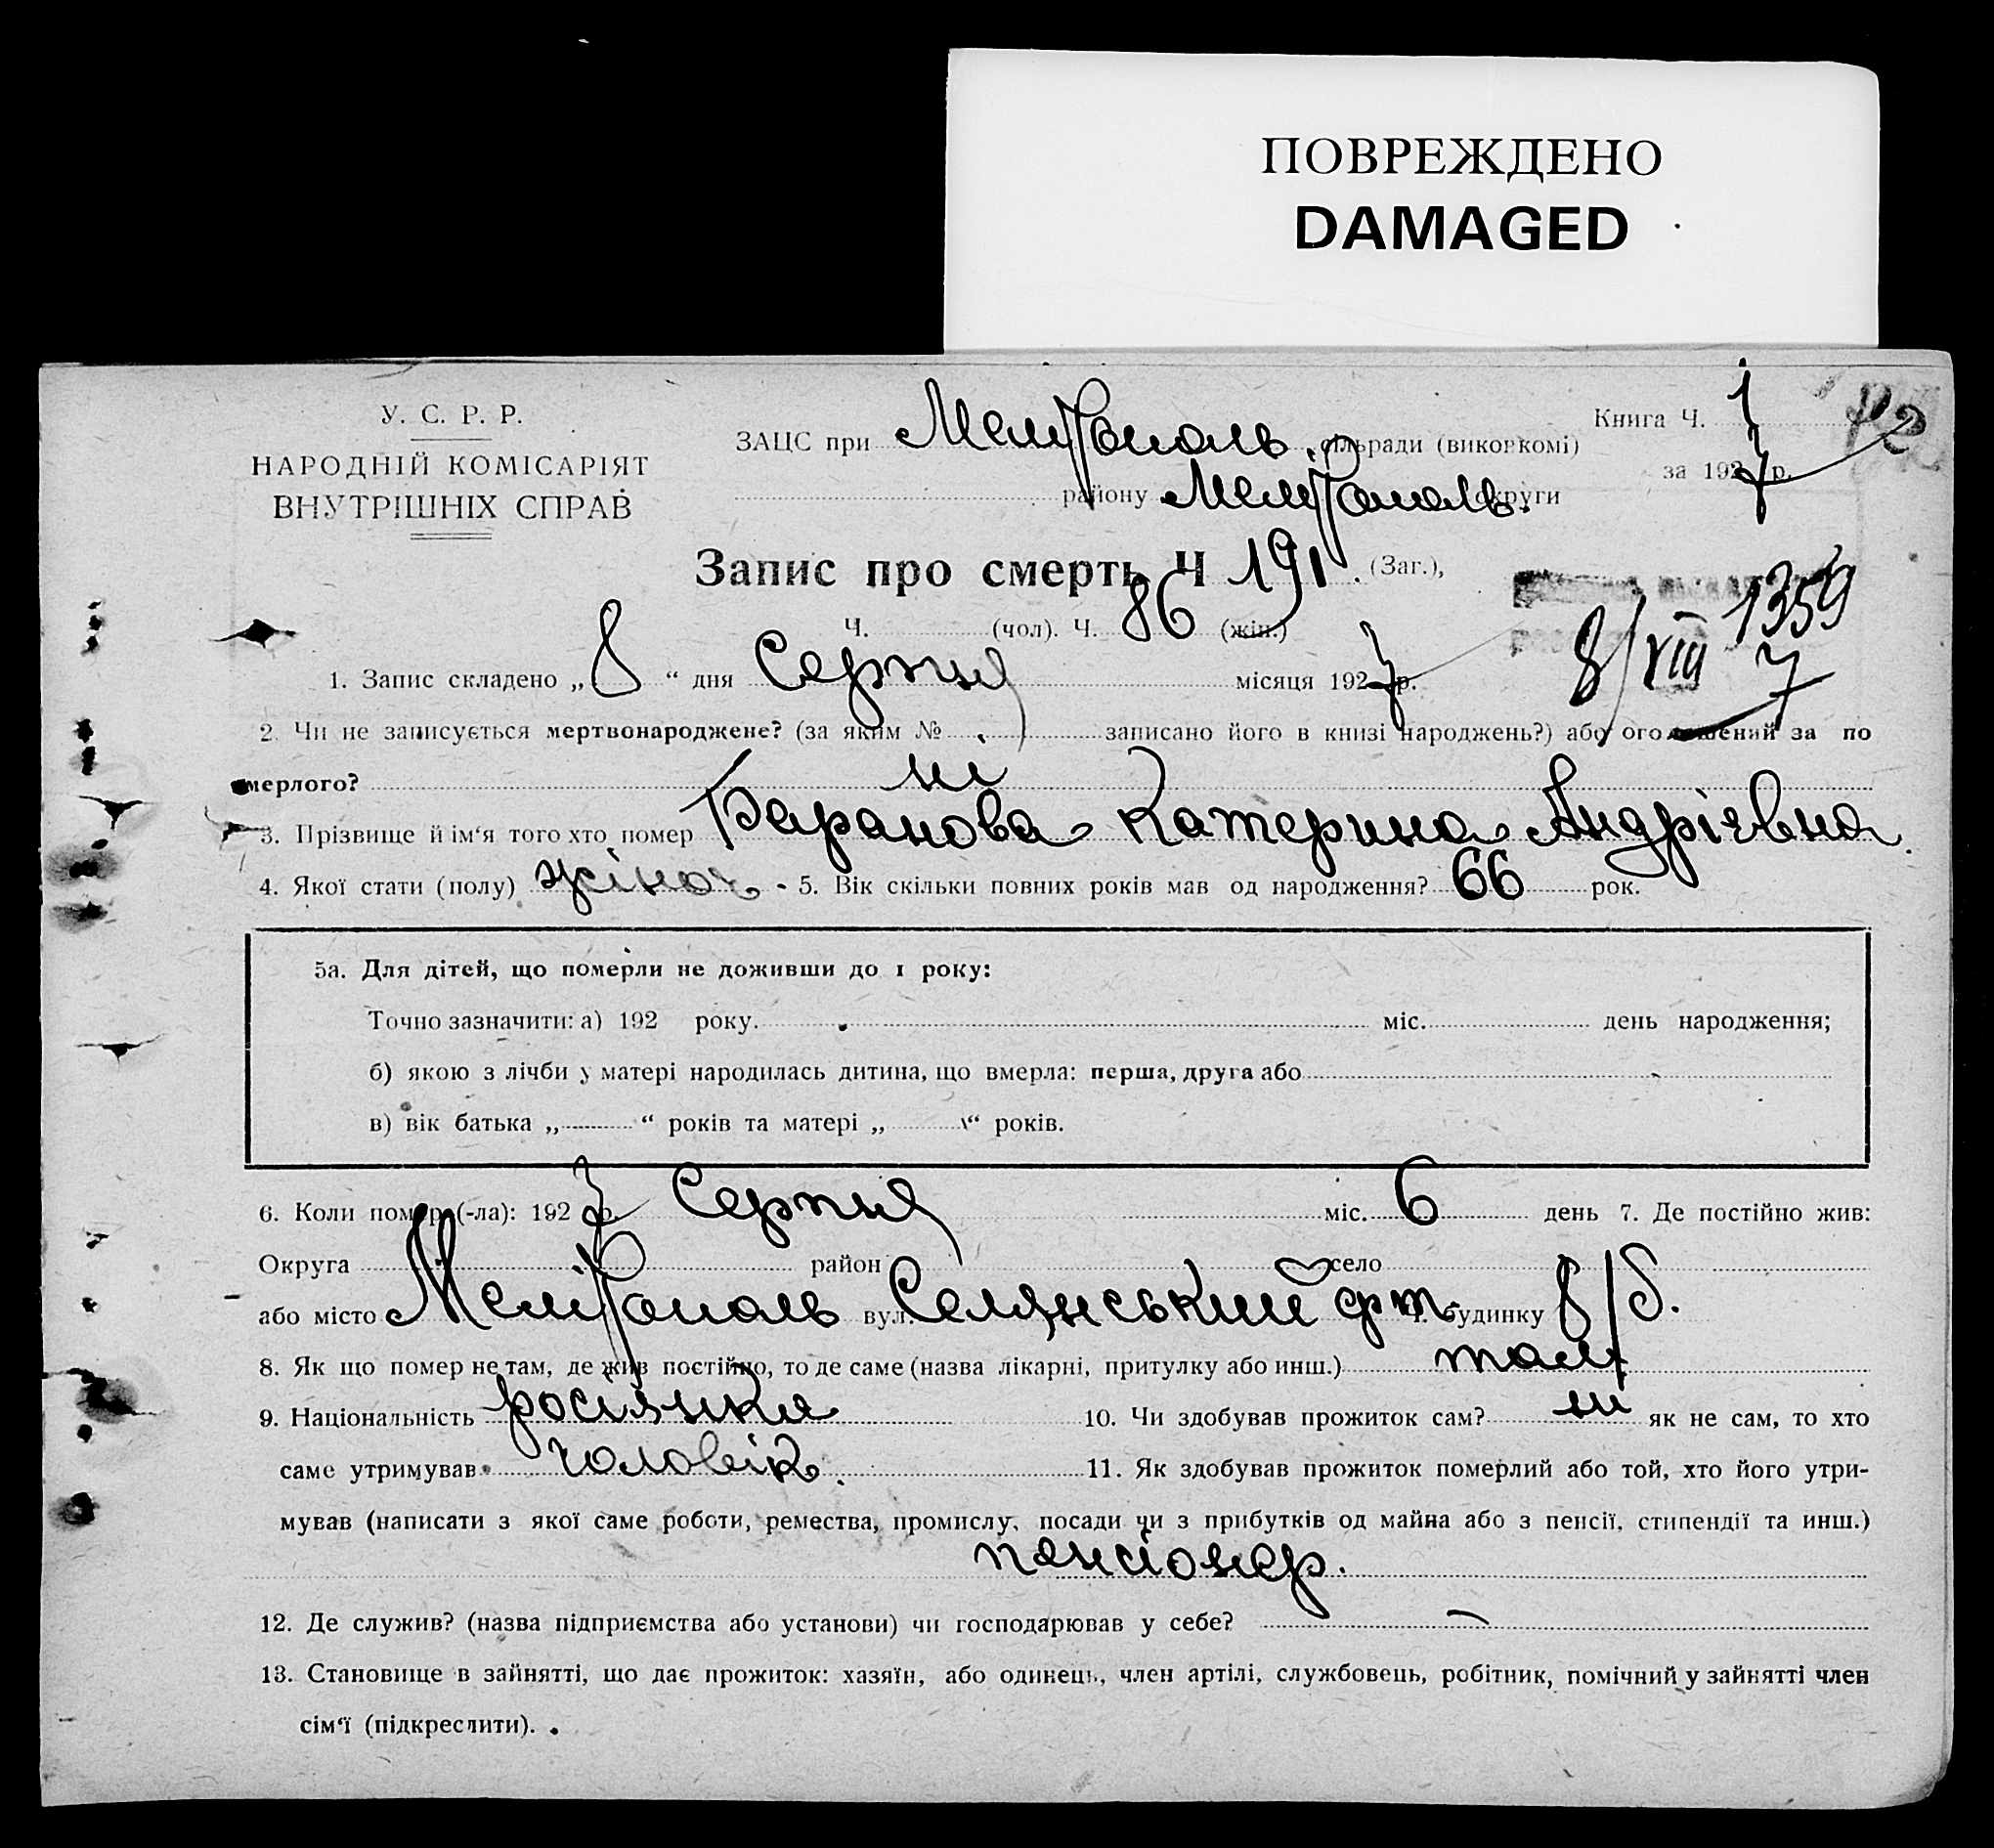 ПОВРЕЖДЕНО
DAMAGED
У. С. Р. Р.
НАРОДНІЙ КОМІСАРІЯТ
ВНУТРІШНІХ СПРАВ
ЗАЦС при Мелітополь сільради (викопкомі)
району Мелітополь. округи
Книга Ч. 1
за 1927 р.
Запис про смерть Ч 191. (Заг.),
Ч. (чол). Ч. 86 (жін.)
1359
8/VIII 7
1. Запис складено „ 8 “ дня Серпня місяця 1927 р.
2. Чи не записується мертвонароджене? (за яким № записано його в книзі народжень?) або оголошений за по
мерлого? ні
3. Прізвище й ім‘я того хто помер Баранова Катерина Андрієвна
4. Якої стати (полу) жіноч. 5. Вік скільки повних років мав од народження? 66 рок.
5а. Для дітей, що померли не доживши до 1 року:
Точно зазначити: а) 192 року. міс. день народження;
б) якою з лічби у матері народилась дитина, що вмерла: перша, друга або
в) вік батька „ “ років та матері „ “ років.
6. Коли помер (-ла): 1927 р. Серпня міс. 6 день 7. Де постійно жив:
Округа район село
або місто Мелітополь вул. Селянський Ч. будинку 8/б.
8. Як що помер не там, де жив постійно, то де саме (назва лікарні, притулку або инш.) там
9. Національність росіянка 10. Чи здобував прожиток сам? ні як не сам, то хто
саме утримував чоловік. 11. Як здобував прожиток померлий або той, хто його утри-
мував (написати з якої саме роботи, ремества, промислу, посади чи з прибутків од майна або з пенсії, стипендії та инш.)
пенсіонер.
12. Де служив? (назва підприємства або установи) чи господарював у себе? —
13. Становище в зайнятті, що дає прожиток: хазяїн, або одинець, член артілі, службовець, робітник, помічний у зайнятті член
сім‘ї (підкреслити).